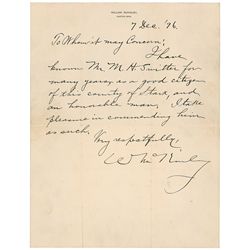 WILLIAM McKINLEY,
CANTON, OHIO.
7 Dec. '96.
To Whom it may Concern:
I have
known Mr. M. H.
for
many years, as a good citizen
of this county of Stark, and
an honorable man. I take
pleasure in commending him
as such.
Very respectfully,
W McKinley